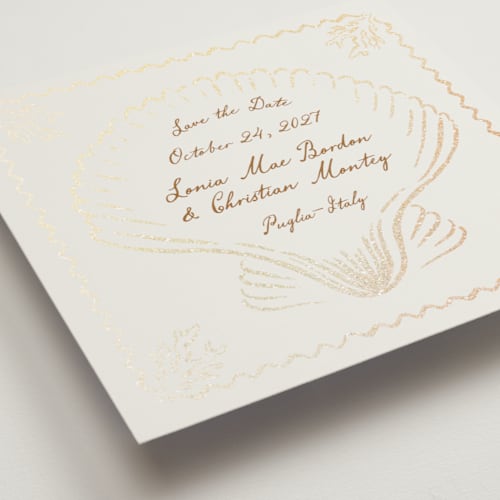 Save the Date
October 24, 2027
Lonia Mae Bordon
& Christian Montey
Puglia-Italy